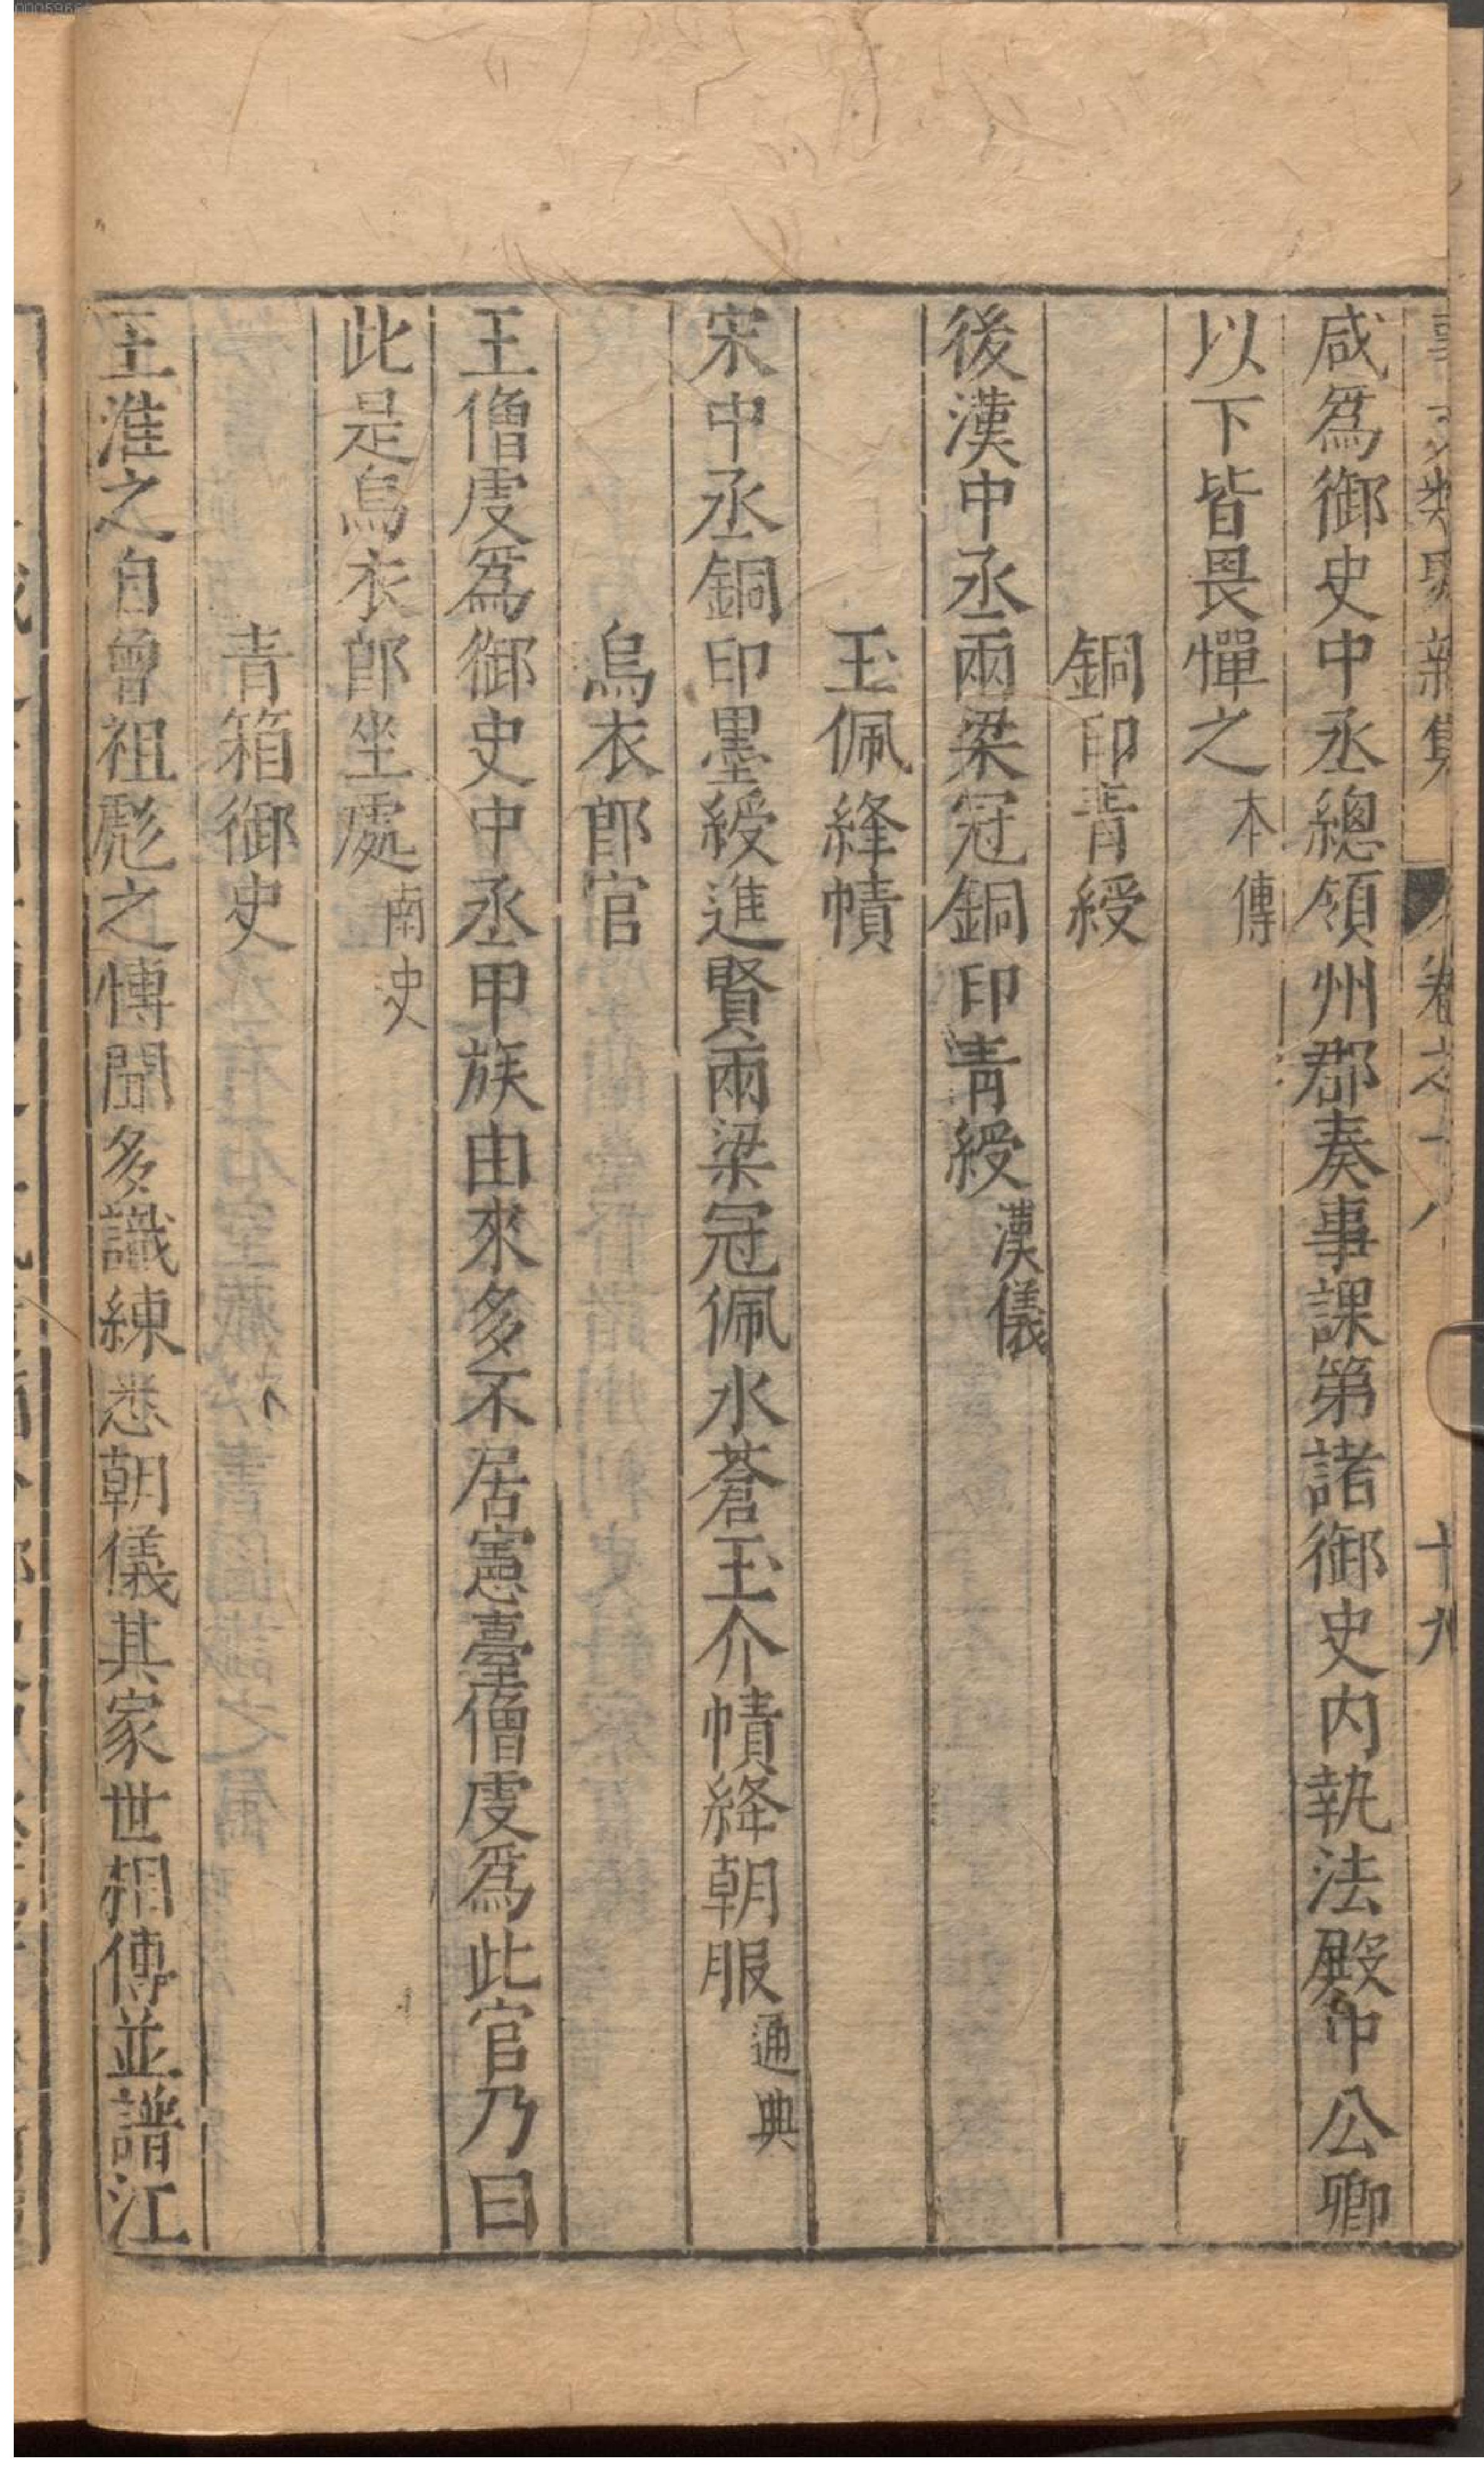 咸爲御史中丞總領州郡奏事課第諸御史内執法殿中公卿
以下皆畏憚之本傳
銅印青綬
後漢中丞兩梁冠銅印青綬漢儀
玉佩絳幘
宋中丞銅印墨綬進賢兩梁冠佩水蒼玉介幘絳朝服通典
烏衣郎官
王僧虔爲御史中丞甲族由來多不居憲臺僧虔爲此官乃曰
此是烏衣郎坐處南史
青箱御史
王淮之自曾祖彪之博聞多識練悉朝儀其家世相傳並譜江